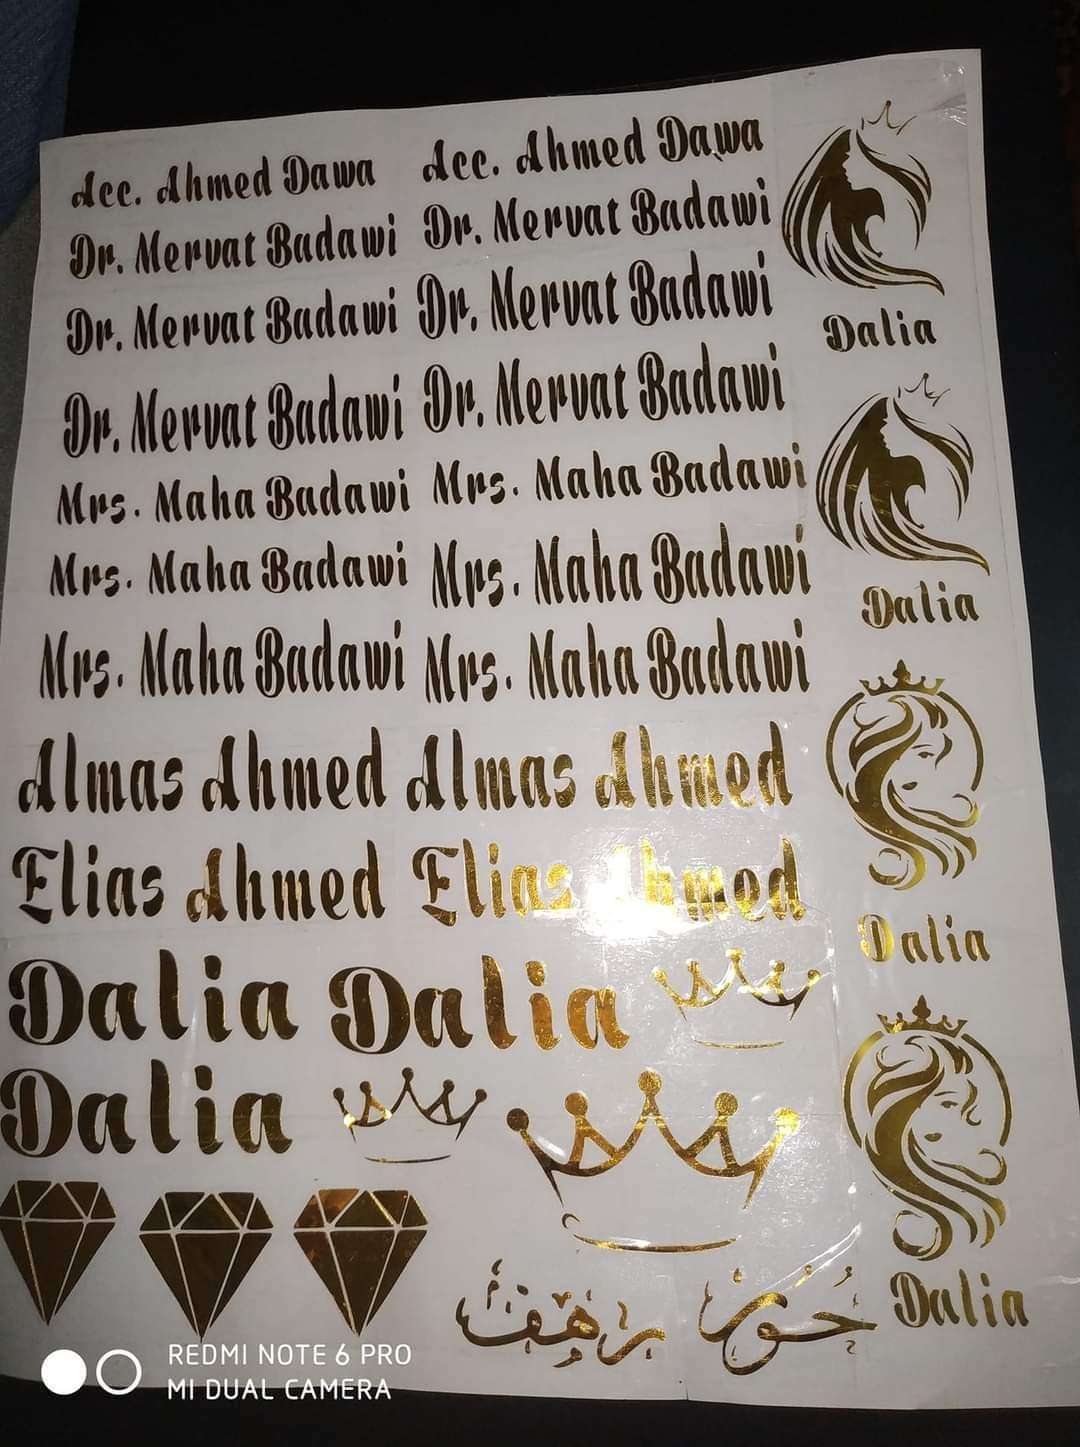 Acc. Ahmed Dawa Acc. Ahmed Dawa
Dr. Mervat Badawi Dr. Mervat Badawi
Dr. Mervat Badawi Dr. Mervat Badawi
Dalia
Dr. Mervat Badawi Dr. Mervat Badawi
Mrs. Maha Badawi Mrs. Maha Badawi
Mrs. Maha Badawi Mrs. Maha Badawi
Dalia
Mrs. Maha Badawi Mrs. Maha Badawi
Almas Ahmed Almas Ahmed
Elias Ahmed Elias Ahmed
Dalia
Dalia Dalia
Dalia
Dalia
حُور رهف
REDMI NOTE 6 PRO
MI DUAL CAMERA